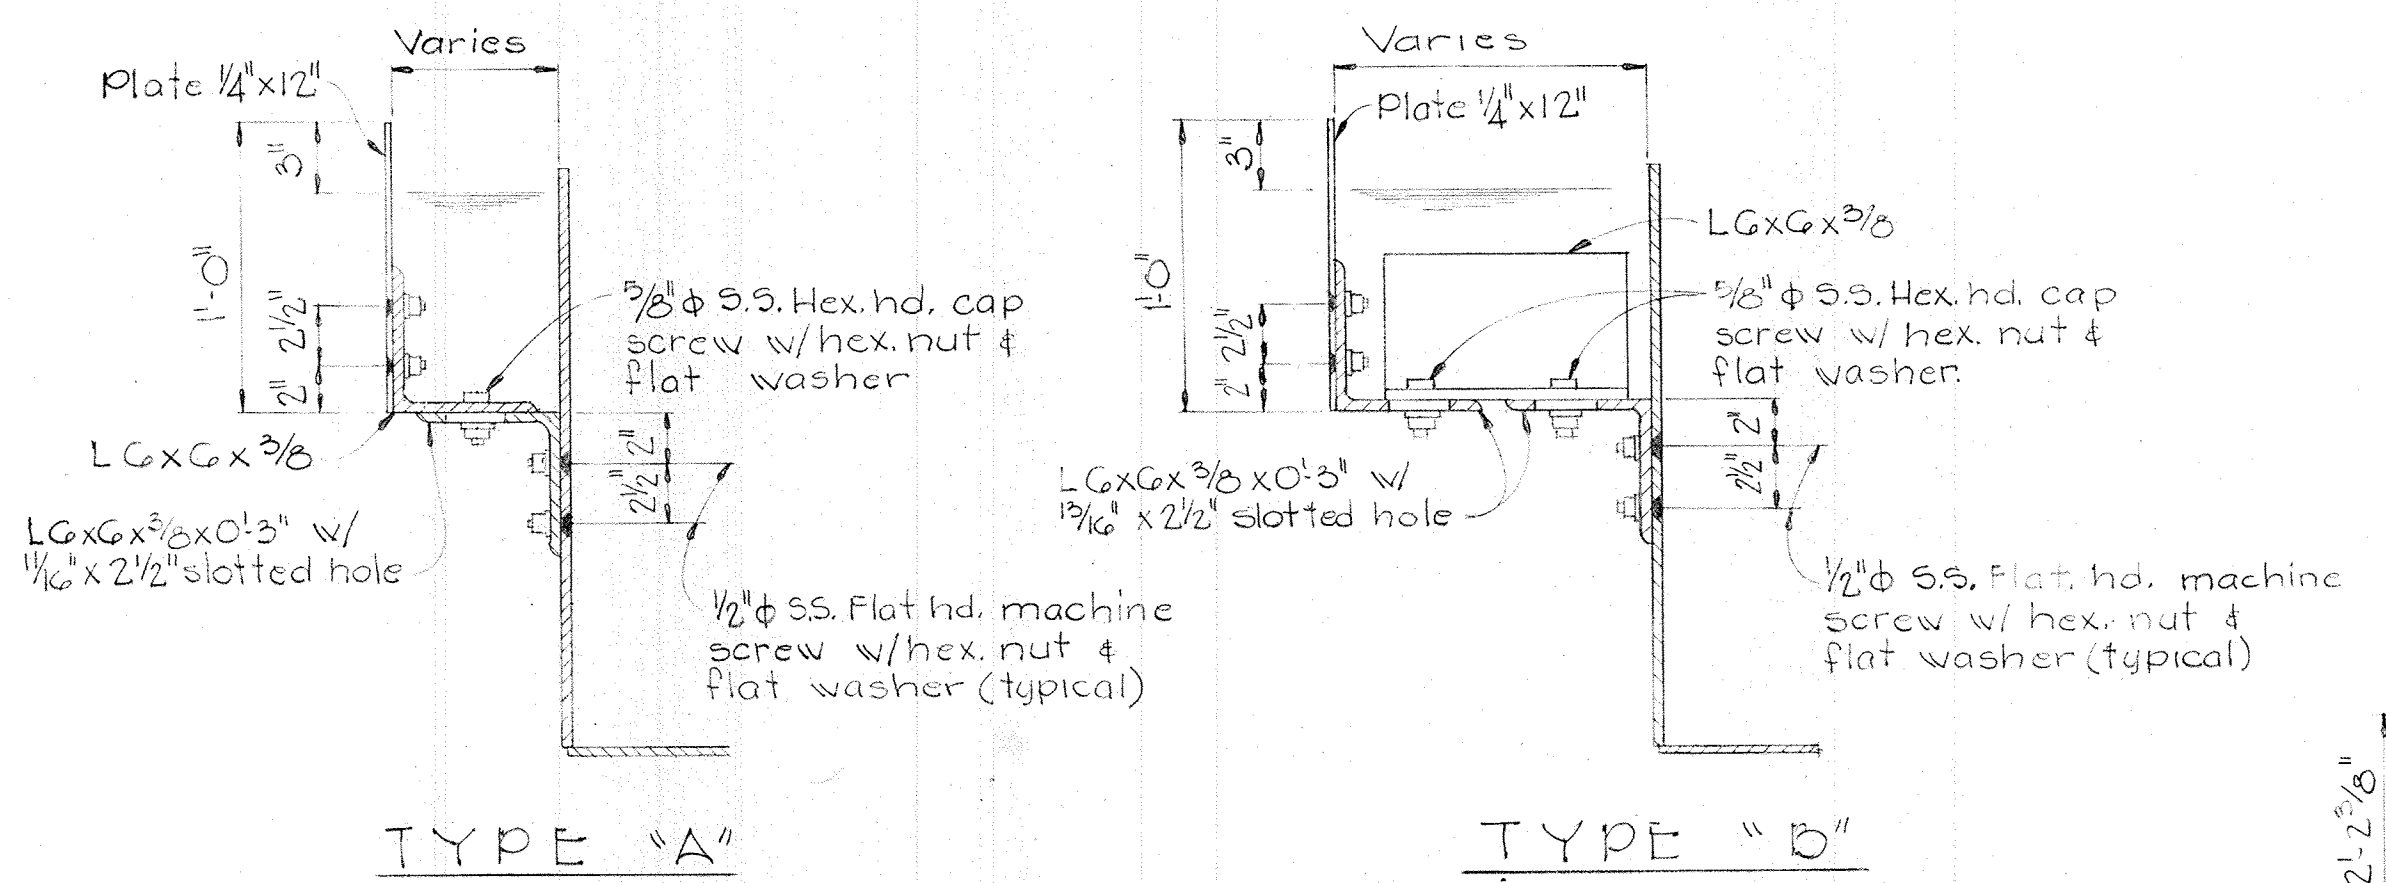 Varies
Plate 1/4"x12"
3"
1'-0"
2 1/2"
2"
5/8"ϕ S.S. Hex. hd. cap
screw w/ hex. nut &
flat washer
L6x6x3/8
2"
2 1/2"
L6x6x3/8x0'-3" w/
11/16" x 2 1/2" slotted hole
1/2"ϕ S.S. Flat hd. machine
screw w/ hex. nut &
flat washer (typical)
TYPE "A"
Varies
Plate 1/4"x12"
3"
1'-0"
2 1/2"
2"
L6x6x3/8
5/8"ϕ S.S. Hex. hd. cap
screw w/ hex. nut &
flat washer.
2"
2 1/2"
L6x6x3/8x0'-3" w/
13/16" x 2 1/2" slotted hole
1/2"ϕ S.S. Flat. hd. machine
screw w/ hex. nut &
flat washer (typical)
TYPE "B"
2'-2 3/8"